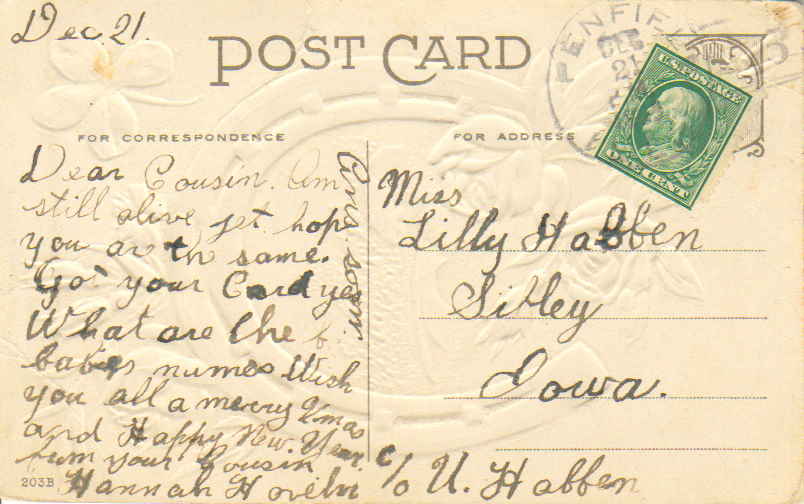 Dec. 21.
POST CARD
PENFIEL
DEC
21
U.S. POSTAGE
ONE CENT
FOR CORRESPONDENCE
FOR ADDRESS
Dear Cousin. Am
still alive yet hope
you are th same.
Go your Card ye
What are the
babes names Wish
you all a merry Xmas
and Happy New Year.
from your Cousin
Hannah
Ans. soon
Miss
Lilly Habben
Sibley
Iowa.
c/o U. Habben
203B